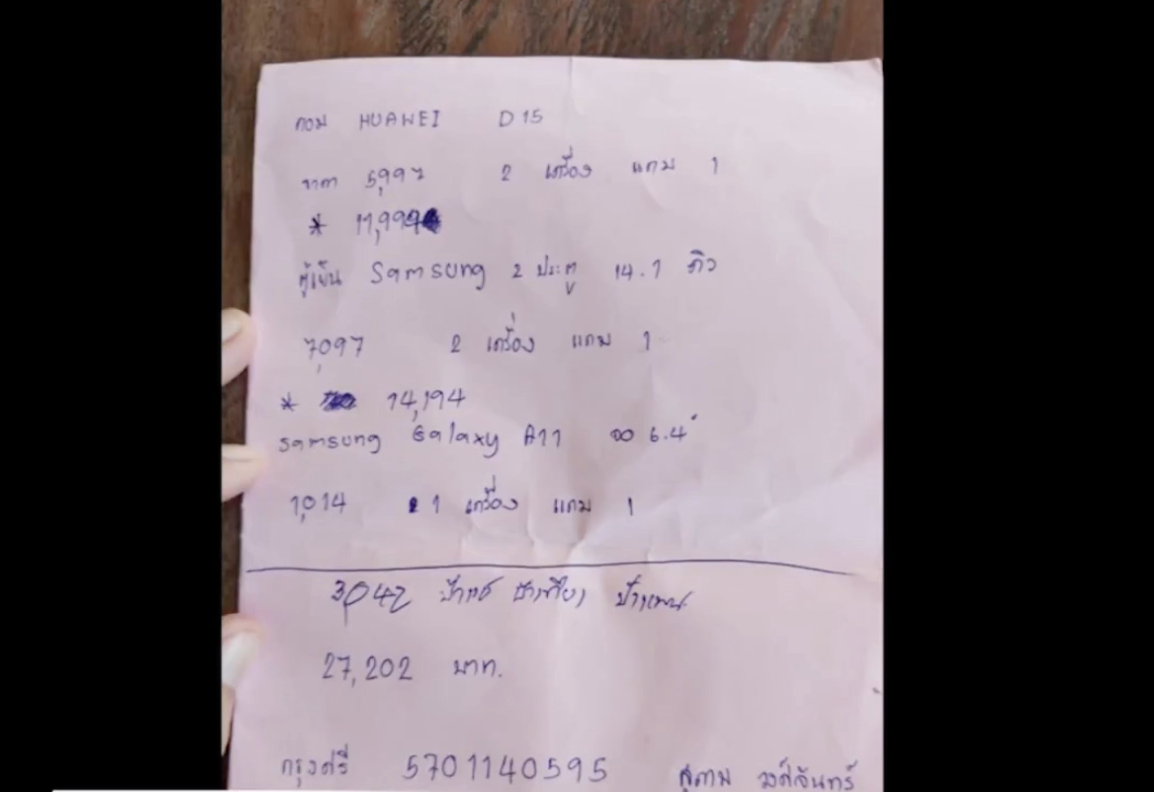 คอม HUAWEI D15
ราคา 5,997 2 เครื่อง แถม 1
* 11,994
ตู้เย็น Samsung 2 ประตู 14.1 คิว
7,097 2 เครื่อง แถม 1
* 14,194
Samsung Galaxy A11 จอ 6.4"
1,014 1 เครื่อง แถม 1
3042
27,202 บาท.
กรุงศรี 5701140595 สุดาพ วงศ์จันทร์